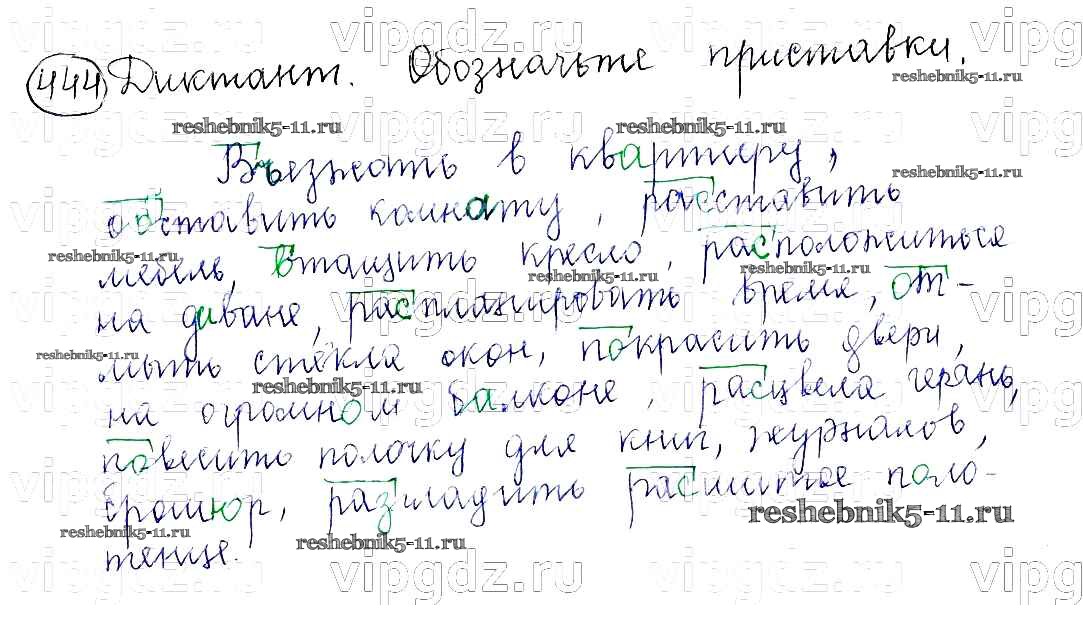 444 Диктант. Обозначьте приставки.
Въезжать в квартиру,
обставить комнату, расставить
мебель, втащить кресло, расположиться
на диване, распланировать время, от-
мыть стёкла окон, покрасить двери,
на огромном балконе, расцвела герань,
повесить полочку для книг, журналов,
брошюр, разгладить расшитое поло-
тенце.
vipgdz.ru
reshebnik5-11.ru